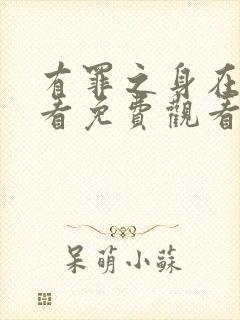 有罪之身在
看免費觀看
呆萌小蘇